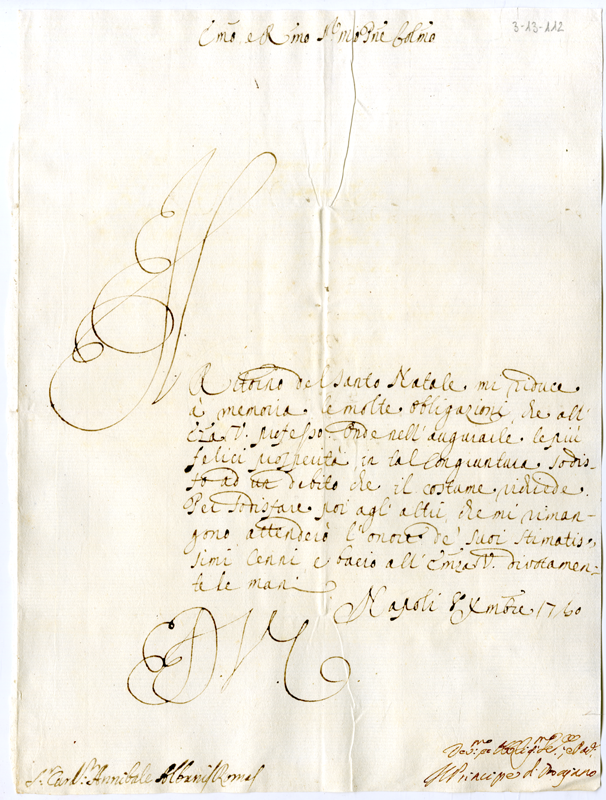 3-13-112
Emo, e Rmo Sr mio Pne Colmo
Il
Ritorno del Santo Natale mi riduce
à memoria le molte obligazioni, che all'
Emza V. professo; onde nell'augurarle le più
felici prosperità in tal congiuntura sodis-
fo ad un debito che il costume richiede.
Per sodisfare poi agl'altri, che mi riman-
gono attenderò l'onore de' suoi stimatis-
simi cenni e bacio all'Emza V. divotamen-
te le mani
Napoli Xmbre
D. V. E.
Sr Cardl Annibale Albani Roma
Il Principe d'